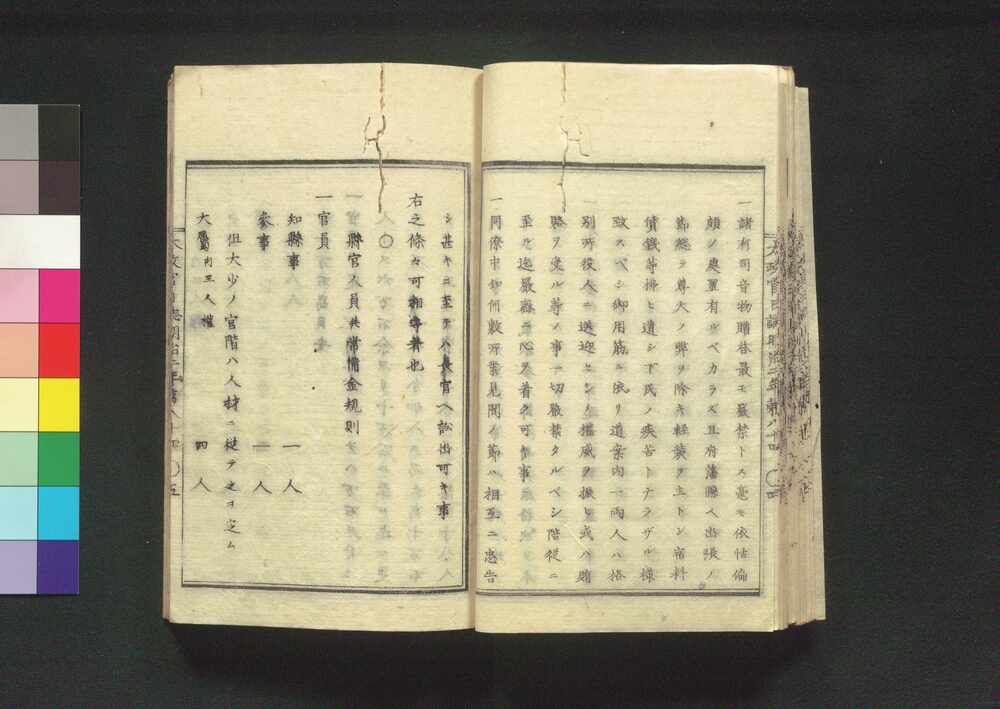 一諸有司音物贈答最モ嚴禁トス毫モ依怙偏
頗ノ處置有ルベカラズ且府藩縣ヘ出張ノ
節總テ尊大ノ弊ヲ除キ軽装ヲ主トシ宿料
債錢等拂ヒ遣シ下民ノ疾苦トナラザル樣
致スベシ御用筋ニ依リ道案内一両人ハ格
別時役人ニ送迎セシメ權威ヲ振ヒ或ハ賄
賂ヲ受ル等ノ事一切嚴禁タルベシ階從ニ
至ル迄嚴嚴ニ心ヲ着ク可キ事
一同僚中如何敷所業見聞ノ節ハ相互ニ忠告
シ甚キニ至テハ長官ヘ訟出可キ事
右之條々可相守者也
○
縣官人員共常備金規則
一官員
知縣事 一人
參事 一人
但大少ノ官階ハ人材ニ從テ之ヲ定ム
大屬内三人權 四人
太政官日誌明治二年第八十四 ○四